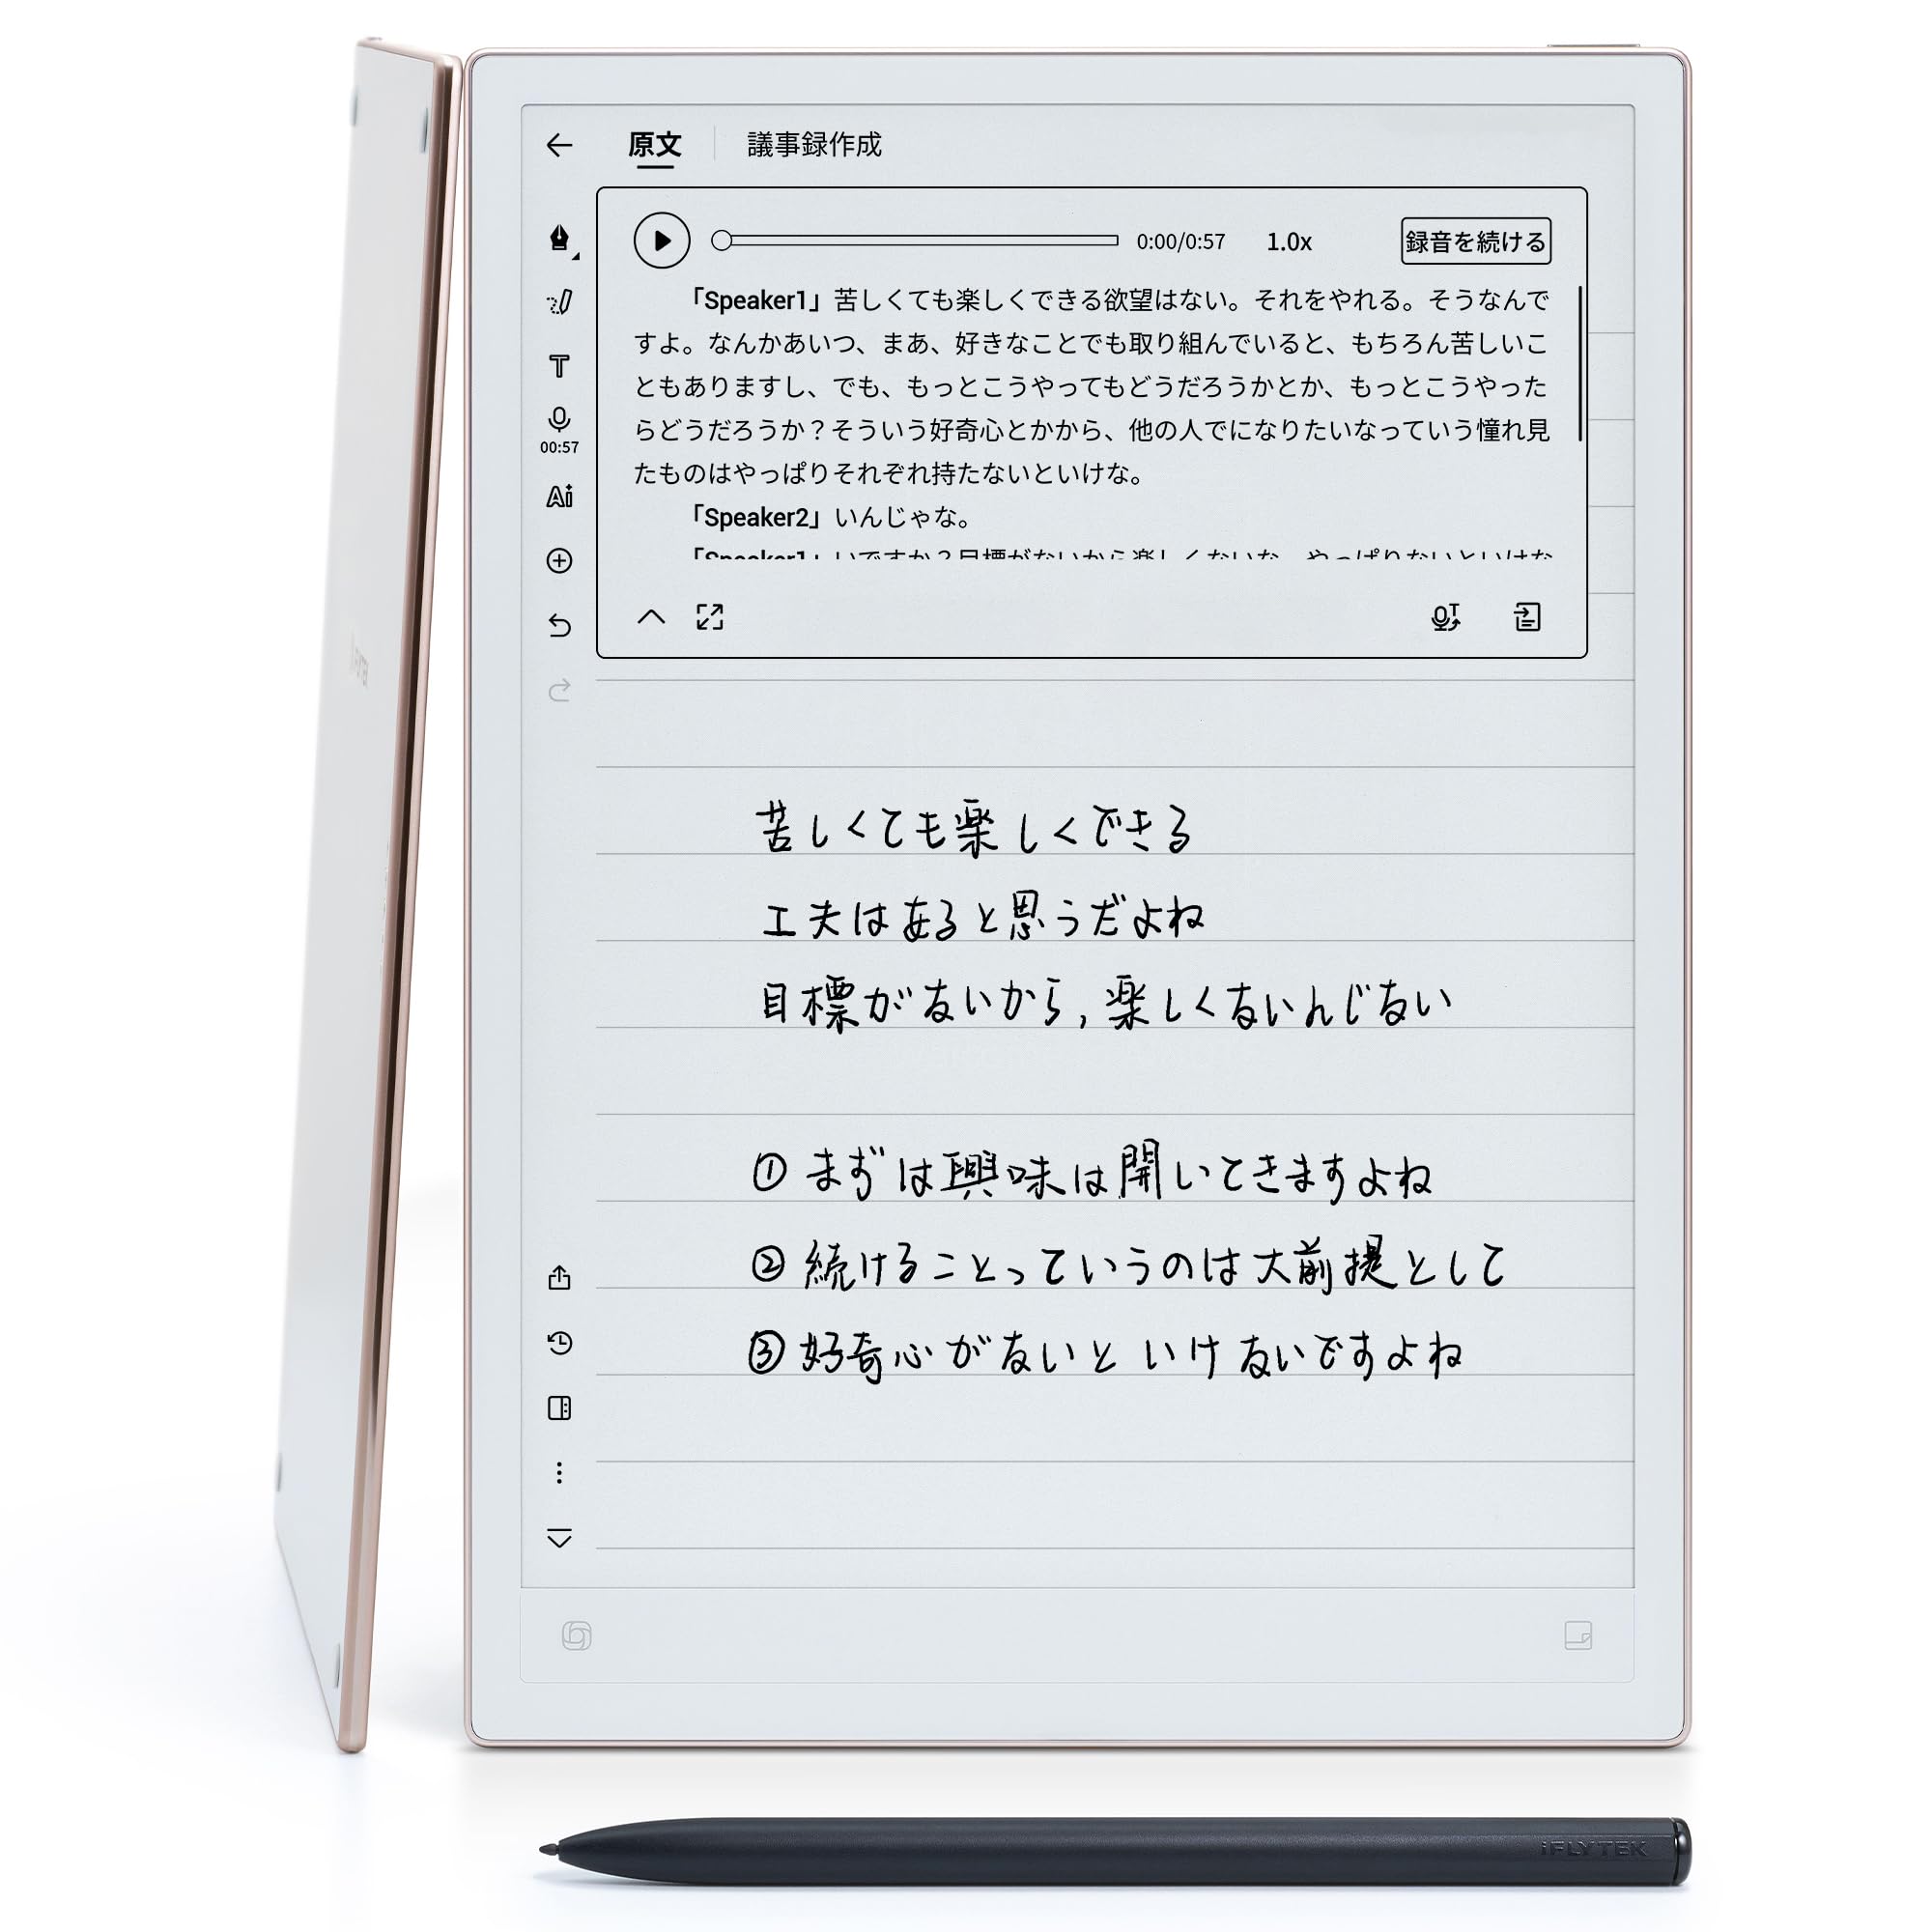 原文 議事録作成
0:00/0:57 1.0x 録音を続ける
「Speaker1」苦しくても楽しくできる欲望はない。それをやれる。そうなんで
すよ。なんかあいつ、まあ、好きなことでも取り組んでいると、もちろん苦しいこ
ともありますし、でも、もっとこうやってもどうだろうかとか、もっとこうやった
らどうだろうか？そういう好奇心とかから、他の人でになりたいなっていう憧れ見
たものはやっぱりそれぞれ持たないといけな。
「Speaker2」いんじゃな。
「Speaker1」いですか？目標がないから楽しくないな、やっぱりないといけな
T
00:57
Ai
苦しくても楽しくできる
工夫はあると思うだよね
目標がないから,楽しくないんじない
① まずは興味は開いてきますよね
② 続けることっていうのは大前提として
③ 好奇心がないといけないですよね
iFLYTEK